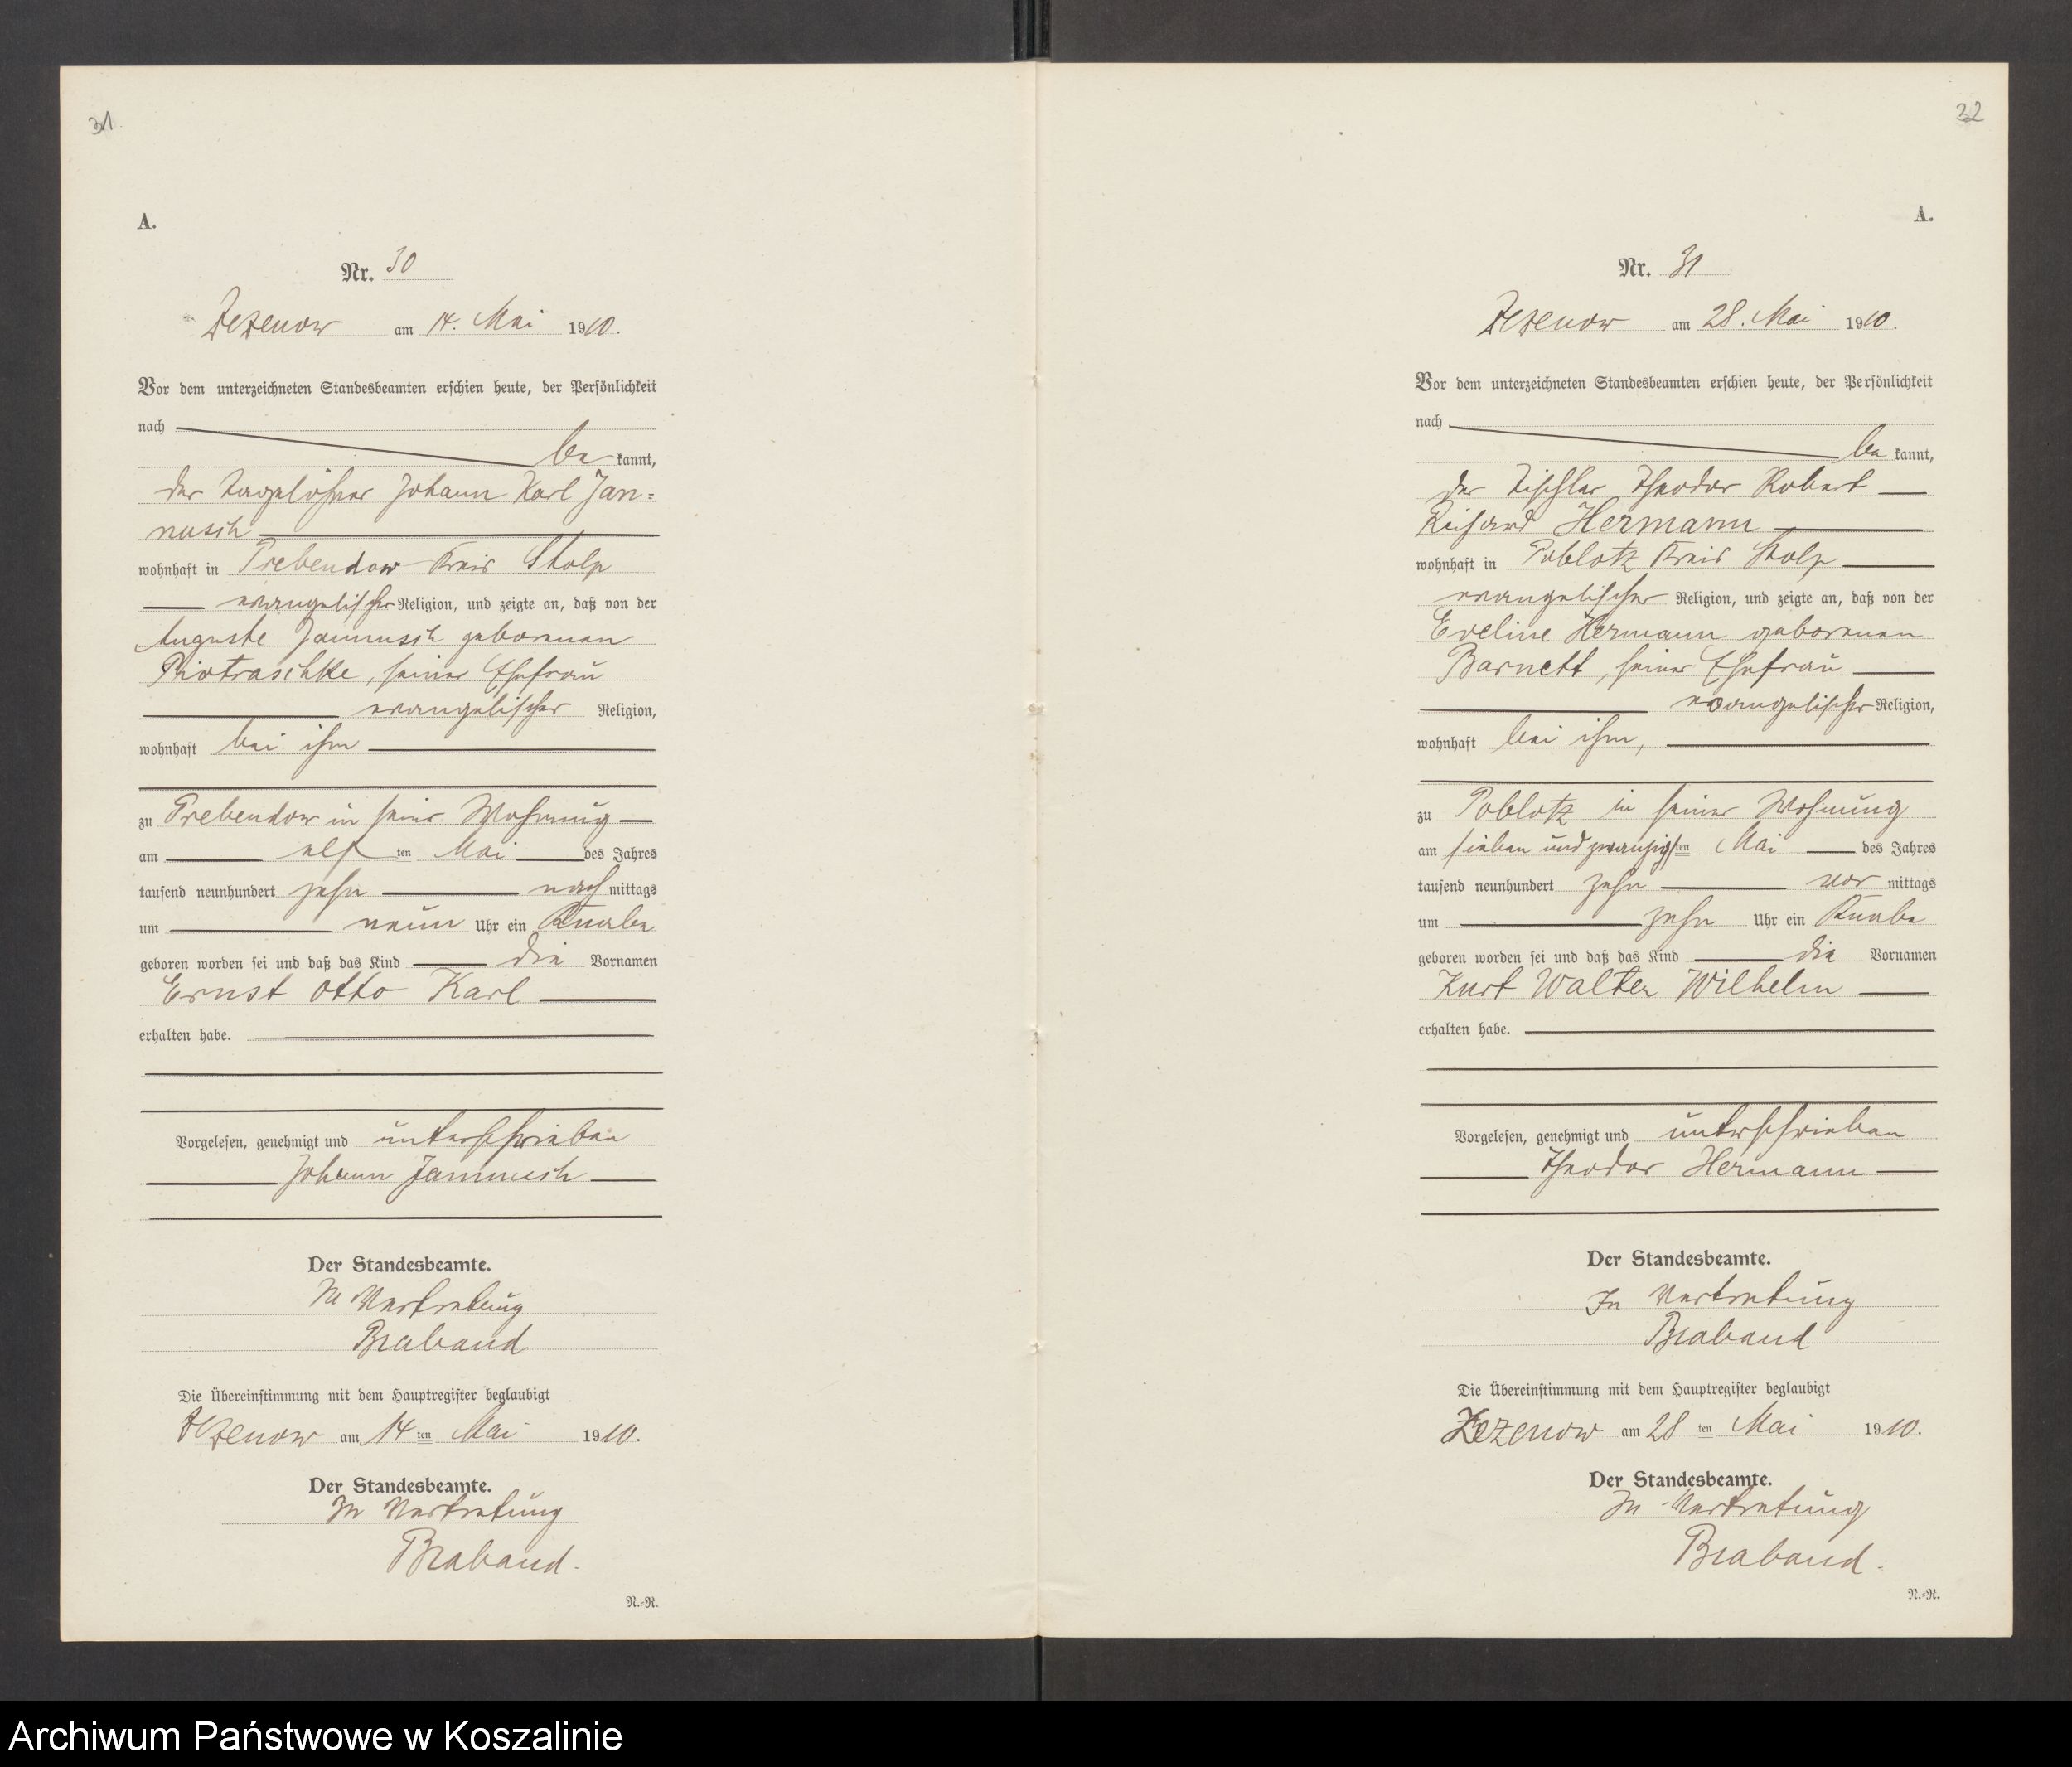 31
A.
Nr. 30
Zezenow am 14. Mai 1910.
Vor dem unterzeichneten Standesbeamten erschien heute, der Persönlichkeit
nach
be kannt,
der Tagelöhner Johann Karl Jan=
nusch
wohnhaft in Prebendow Kreis Stolp
evangelischer Religion, und zeigte an, daß von der
Auguste Jannusch geborenen
Piotraschke, seiner Ehefrau
evangelischer Religion,
wohnhaft bei ihm
zu Prebendow in seiner Wohnung
am elf ten Mai des Jahres
tausend neunhundert zehn nach mittags
um neun Uhr ein Knabe
geboren worden sei und daß das Kind die Vornamen
Ernst Otto Karl
erhalten habe.
Vorgelesen, genehmigt und unterschrieben
Johann Jannusch
Der Standesbeamte.
In Vertretung
Braband
Die Übereinstimmung mit dem Hauptregister beglaubigt
Zezenow am 14 ten Mai 1910.
Der Standesbeamte.
In Vertretung
Braband.
N.=R.
32
A.
Nr. 31
Zezenow am 28. Mai 1910.
Vor dem unterzeichneten Standesbeamten erschien heute, der Persönlichkeit
nach
be kannt,
der Tischler Theodor Robert
Richard Hermann
wohnhaft in Poblotz Kreis Stolp
evangelischer Religion, und zeigte an, daß von der
Eveline Hermann geborenen
Barnett, seiner Ehefrau
evangelischer Religion,
wohnhaft bei ihm,
zu Poblotz in seiner Wohnung
am sieben und zwanzigsten Mai des Jahres
tausend neunhundert zehn vor mittags
um zehn Uhr ein Knabe
geboren worden sei und daß das Kind die Vornamen
Kurt Walter Wilhelm
erhalten habe.
Vorgelesen, genehmigt und unterschrieben
Theodor Hermann
Der Standesbeamte.
In Vertretung
Braband
Die Übereinstimmung mit dem Hauptregister beglaubigt
Zezenow am 28 ten Mai 1910.
Der Standesbeamte.
In Vertretung
Braband.
N.=R.
Archiwum Państwowe w Koszalinie